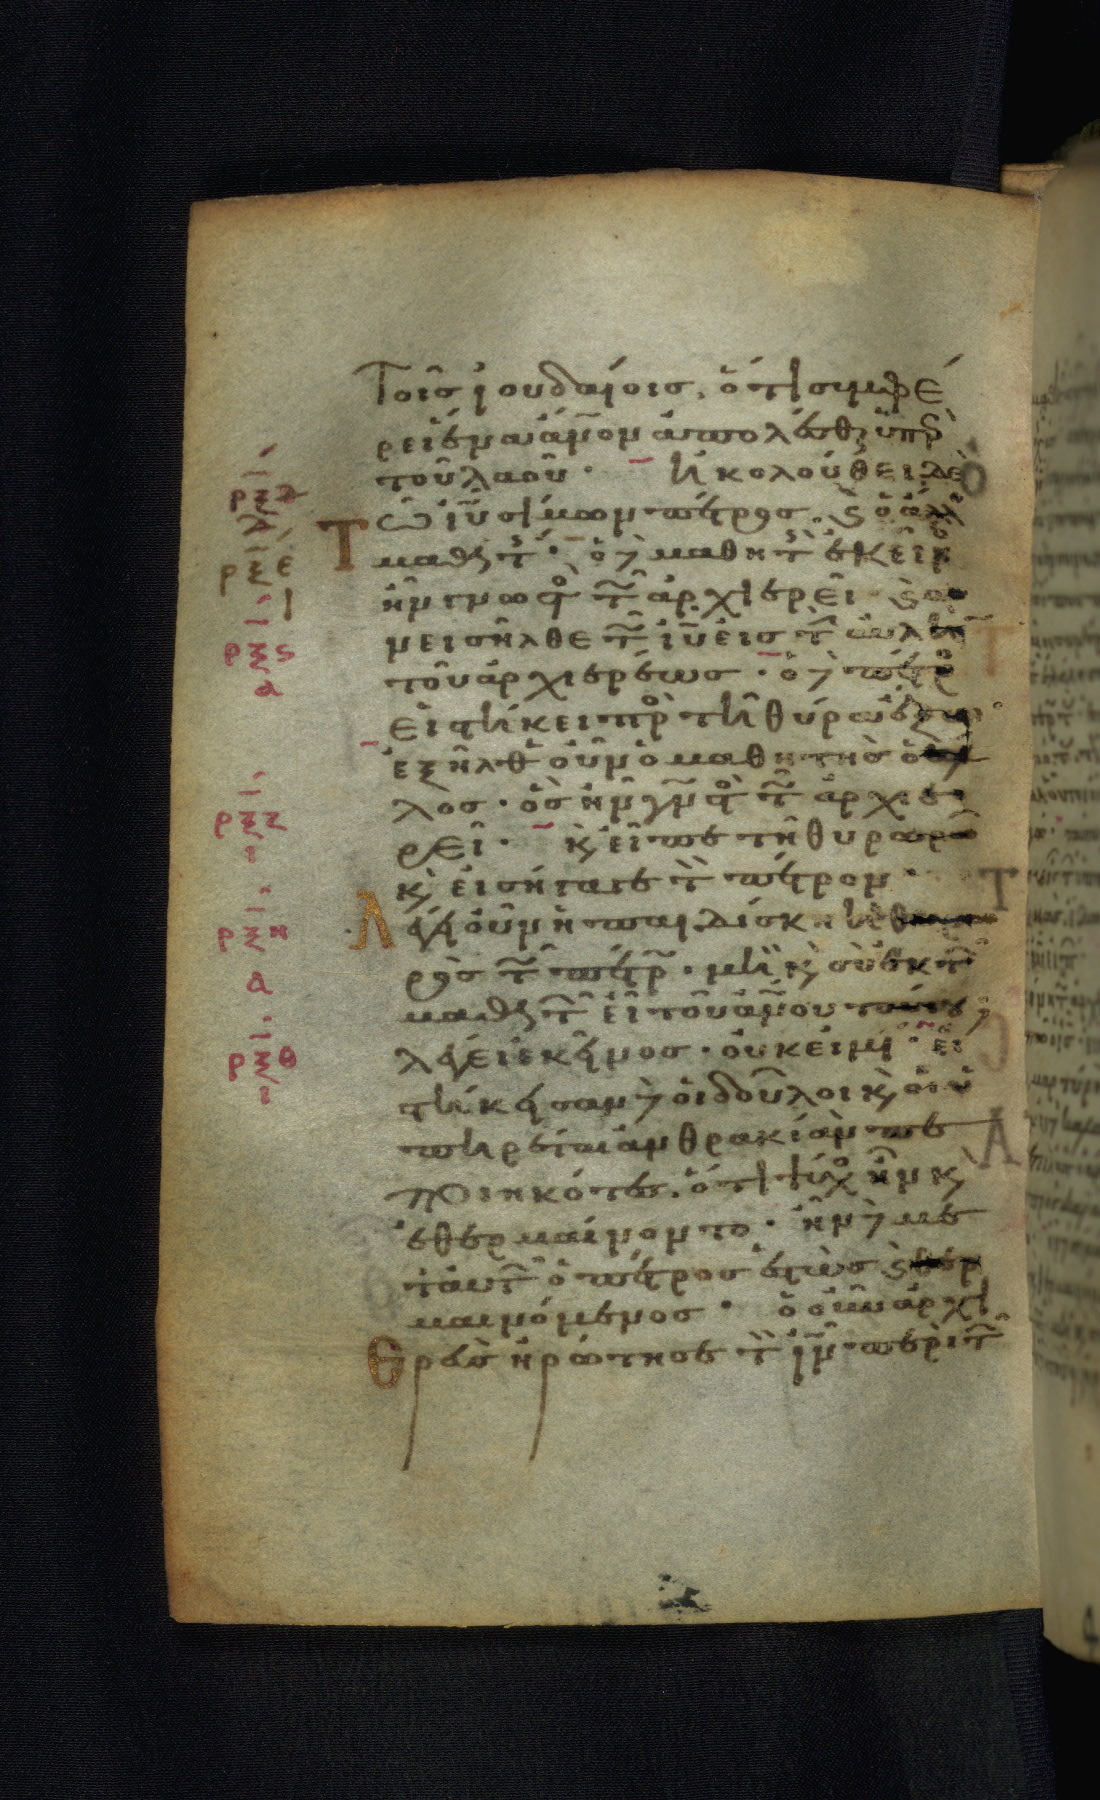 Τοῖς ἰουδαίοις, ὅτι συμφέ
ρει ἕνα ἄνον ἀπολέσθ ὑπὲρ
τοῦ λαοῦ · ἠκολούθει δὲ
Τῶ ἰῦ σίμων πέτρος, καὶ ὁ ἄλλ
μαθητ · ὁ δὲ μαθητ ἐκεῖν
ἦν γνωστ τῶ ἀρχιερεῖ καὶ συ
νεισῆλθε τῶ ἰῦ εἰς τ αὐλὴν
τοῦ ἀρχιερέως · ὁ δὲ πέτρ
εἱστήκει πρ τῆ θύρα ἔξω
ἐξῆλθ οὖν ὁ μαθητὴς ὁ ἄλ
λος · ὃς ἦν γν τῶ ἀρχιε
ρεῖ · κ εἶπε τῆ θυρωρῶ
κ εἰσήγαγε τ πέτρον
Λέγει οὖν ἡ παιδίσκη ἡ θυρω
ρὸς τῶ πέτρ · μὴ κ σὺ ἐκ τῶν
μαθητ εἶ τοῦ ἀνου τούτου
λέγει ἐκεῖνος · οὐκ εἰμί · εἱ
στήκεισαν δὲ οἱ δοῦλοι κ οἱ ὑ
πηρέται ἀνθρακιὰν πε
ποιηκότες, ὅτι ψύχ ἦν κ
ἐθερμαίνοντο · ἦν δὲ με
τ αὐτ ὁ πέτρος ἑστὼς καὶ θερ
μαινόμενος · ὁ οὖν ἀρχι
Ερεὺς ἠρώτησε τ ἰν περὶ τῶν
ρξδ
δ
ρξε
ι
ρξϛ
α
ρξζ
ι
ρξη
α
ρξθ
ι